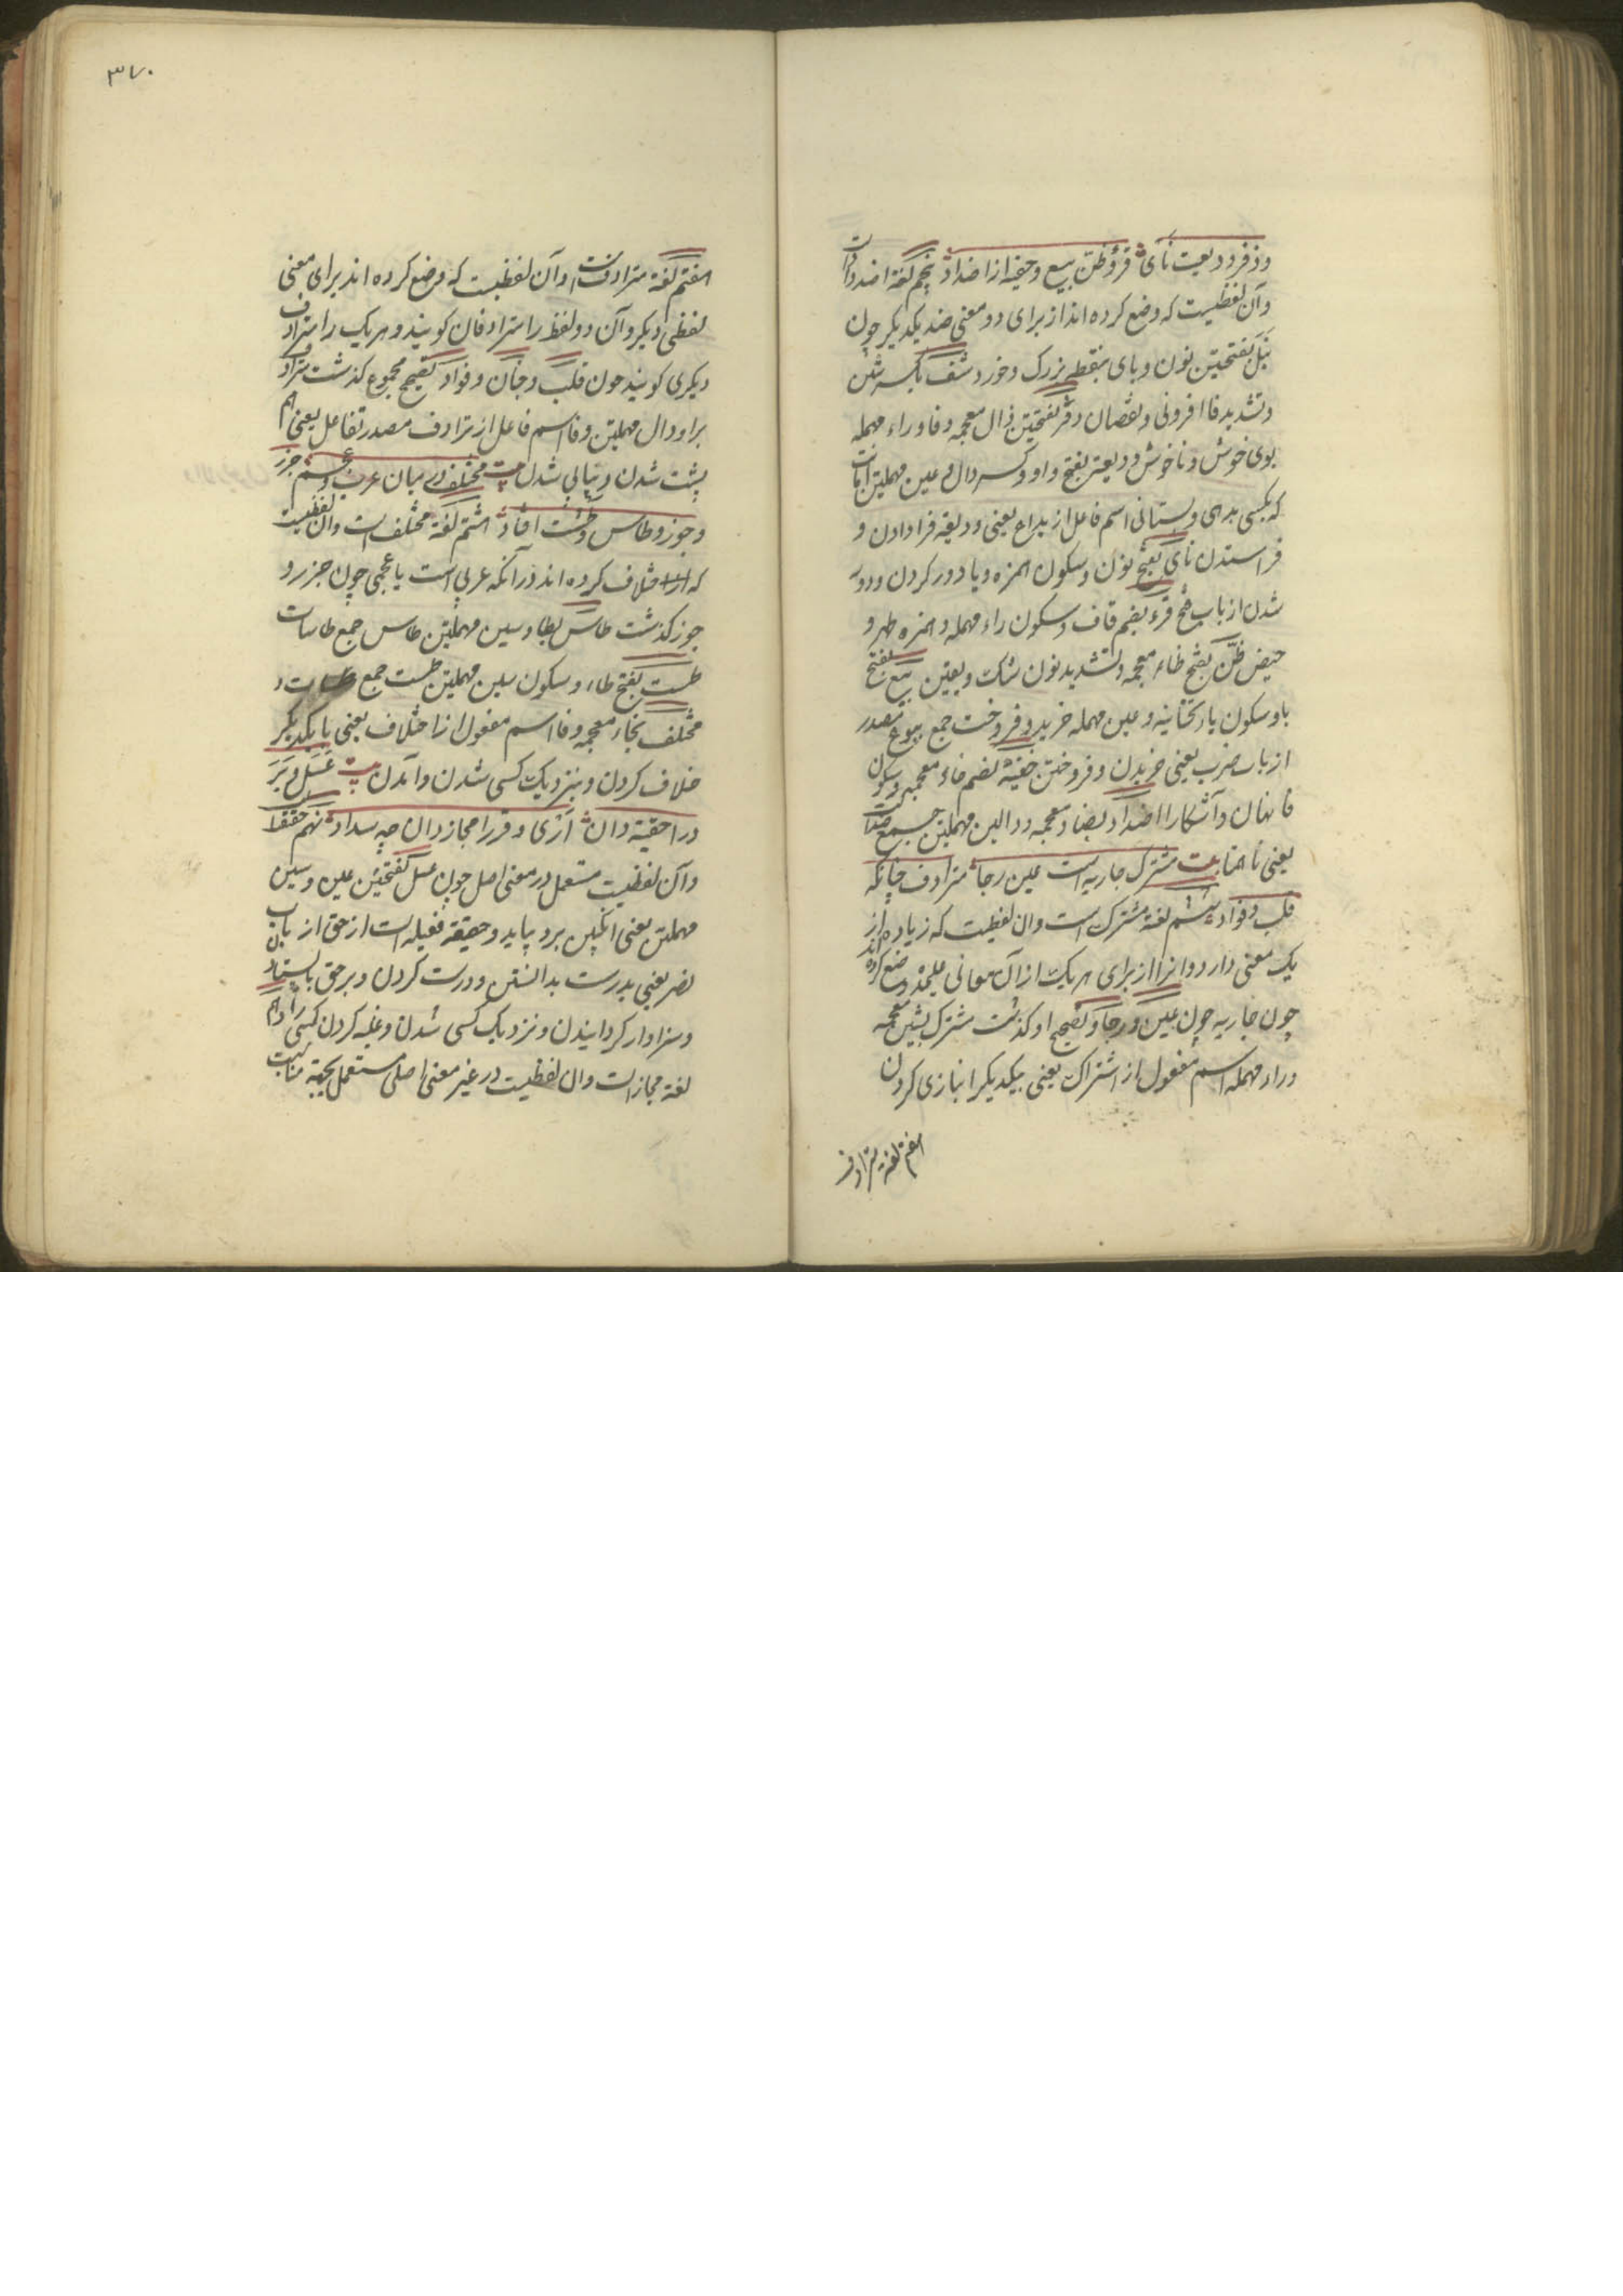 وذفر و دیعت نأی قرؤ ظن بیع وخفیه از اضداد پنجم لغة اضدادات
وآن لفظیست که وضع کرده اند از برای دو معنی ضد یکدیگر چون
نبل بفتحتین نون و بای بنقطه بزرگ و خورد شف بکسر شین
وتشدید فا افزونی و نقصان ذفر بفتحتین ذال معجمه وفا وراء مهمله
بوی خوش و ناخوش ودیعت بفتح واو وکسر دال وعین مهملتین امانت
که بکسی بدهی و بستانی اسم فاعل از یداع یعنی ودیعه فرا دادن و
فراستدن نأی بفتح نون وسکون همزه ویا دور کردن ودور
شدن از باب فتح قرء بضم قاف وسکون راء مهمله وهمزه طهر و
حیض ظن بفتح ظاء معجمه وتشدید نون شک ویقین بیع بفتح
با وسکون یاء تحتانیه وعین مهمله خرید وفروخت جمع بیوع مصدر
از باب ضرب یعنی خریدن وفروختن خفیة بضم خاء معجمه وسکون
فا نهان وآشکارا اضداد بضاد معجمه ودالین مهملتین جمع ضد
یعنی نا همتا بیت مشترک جاریه است عین رجا مترادف چنانکه
قلب وفواد ششم لغة مشترک است وان لفظیست که زیاده از
یک معنی دارد وانرا از برای هر یک از آن معانی علیحده وضع کرده اند
چون جاریه چون عین ورجا وتصحیح او گذشت مشترک بشین معجمه
وراء مهمله اسم مفعول از اشتراک یعنی بیکدیگر انبازی کردن
هفتم لغة مترادف
۳۷۰
هفتم لغة مترادفست وآن لفظیست که وضع کرده اند برای معنی
لفظی دیگر وآن دو لفظ را مترادفان کویند وهر یک را مترادف
دیکری کویند چون قلب وجنان وفواد تصحیح مجموع کذشت مترادف
برا ودال مهملتین وفا اسم فاعل از ترادف مصدر تفاعل یعنی هم
پشت شدن وپیاپی شدن بیت مختلف در میان عرب وعجم جزر
وجوز وطاس وطشت افتاد هشتم لغة مختلف است وان لفظیست
که اختلاف کرده اند در آنکه عربی است یا عجمی چون جزر و
جوز کذشت طاس بطا وسین مهملتین طاس جمع طاسات
طست بفتح طاء وسکون سین مهملتین طست جمع
مختلف بخاء معجمه وفا اسم مفعول از اختلاف یعنی با یکدیکر
خلاف کردن وبنزدیک کسی شدن وآمدن بیت عسل وبر
درا حقیقة دان اری وقر را مجاز دان چه سداد نهم حقیقة
وآن لفظیست مستعمل در معنی اصل چون عسل بفتحتین عین وسین
مهملتین یعنی انکبین برد بیاید وحقیقة فعیله است از حق از باب
نصر یعنی بدرست بدانستن ودرست کردن وبر حق بایستادن
وسزاوار کردانیدن ونزدیک کسی شدن وغلبه کردن کسی را دهم
لغة مجازست وان لفظیست در غیر معنی اصلی مستعمل بجهة مناسبت